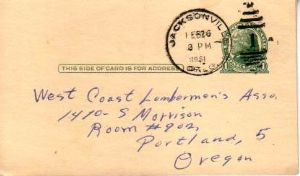 JACKSONVIL
FEB 26
3 PM
1951
OREG.
THIS SIDE OF CARD IS FOR ADDRESS
West Coast Lumbermen's Asso.
1410-S Morrison
Room #902,
Portland, 5
Oregon